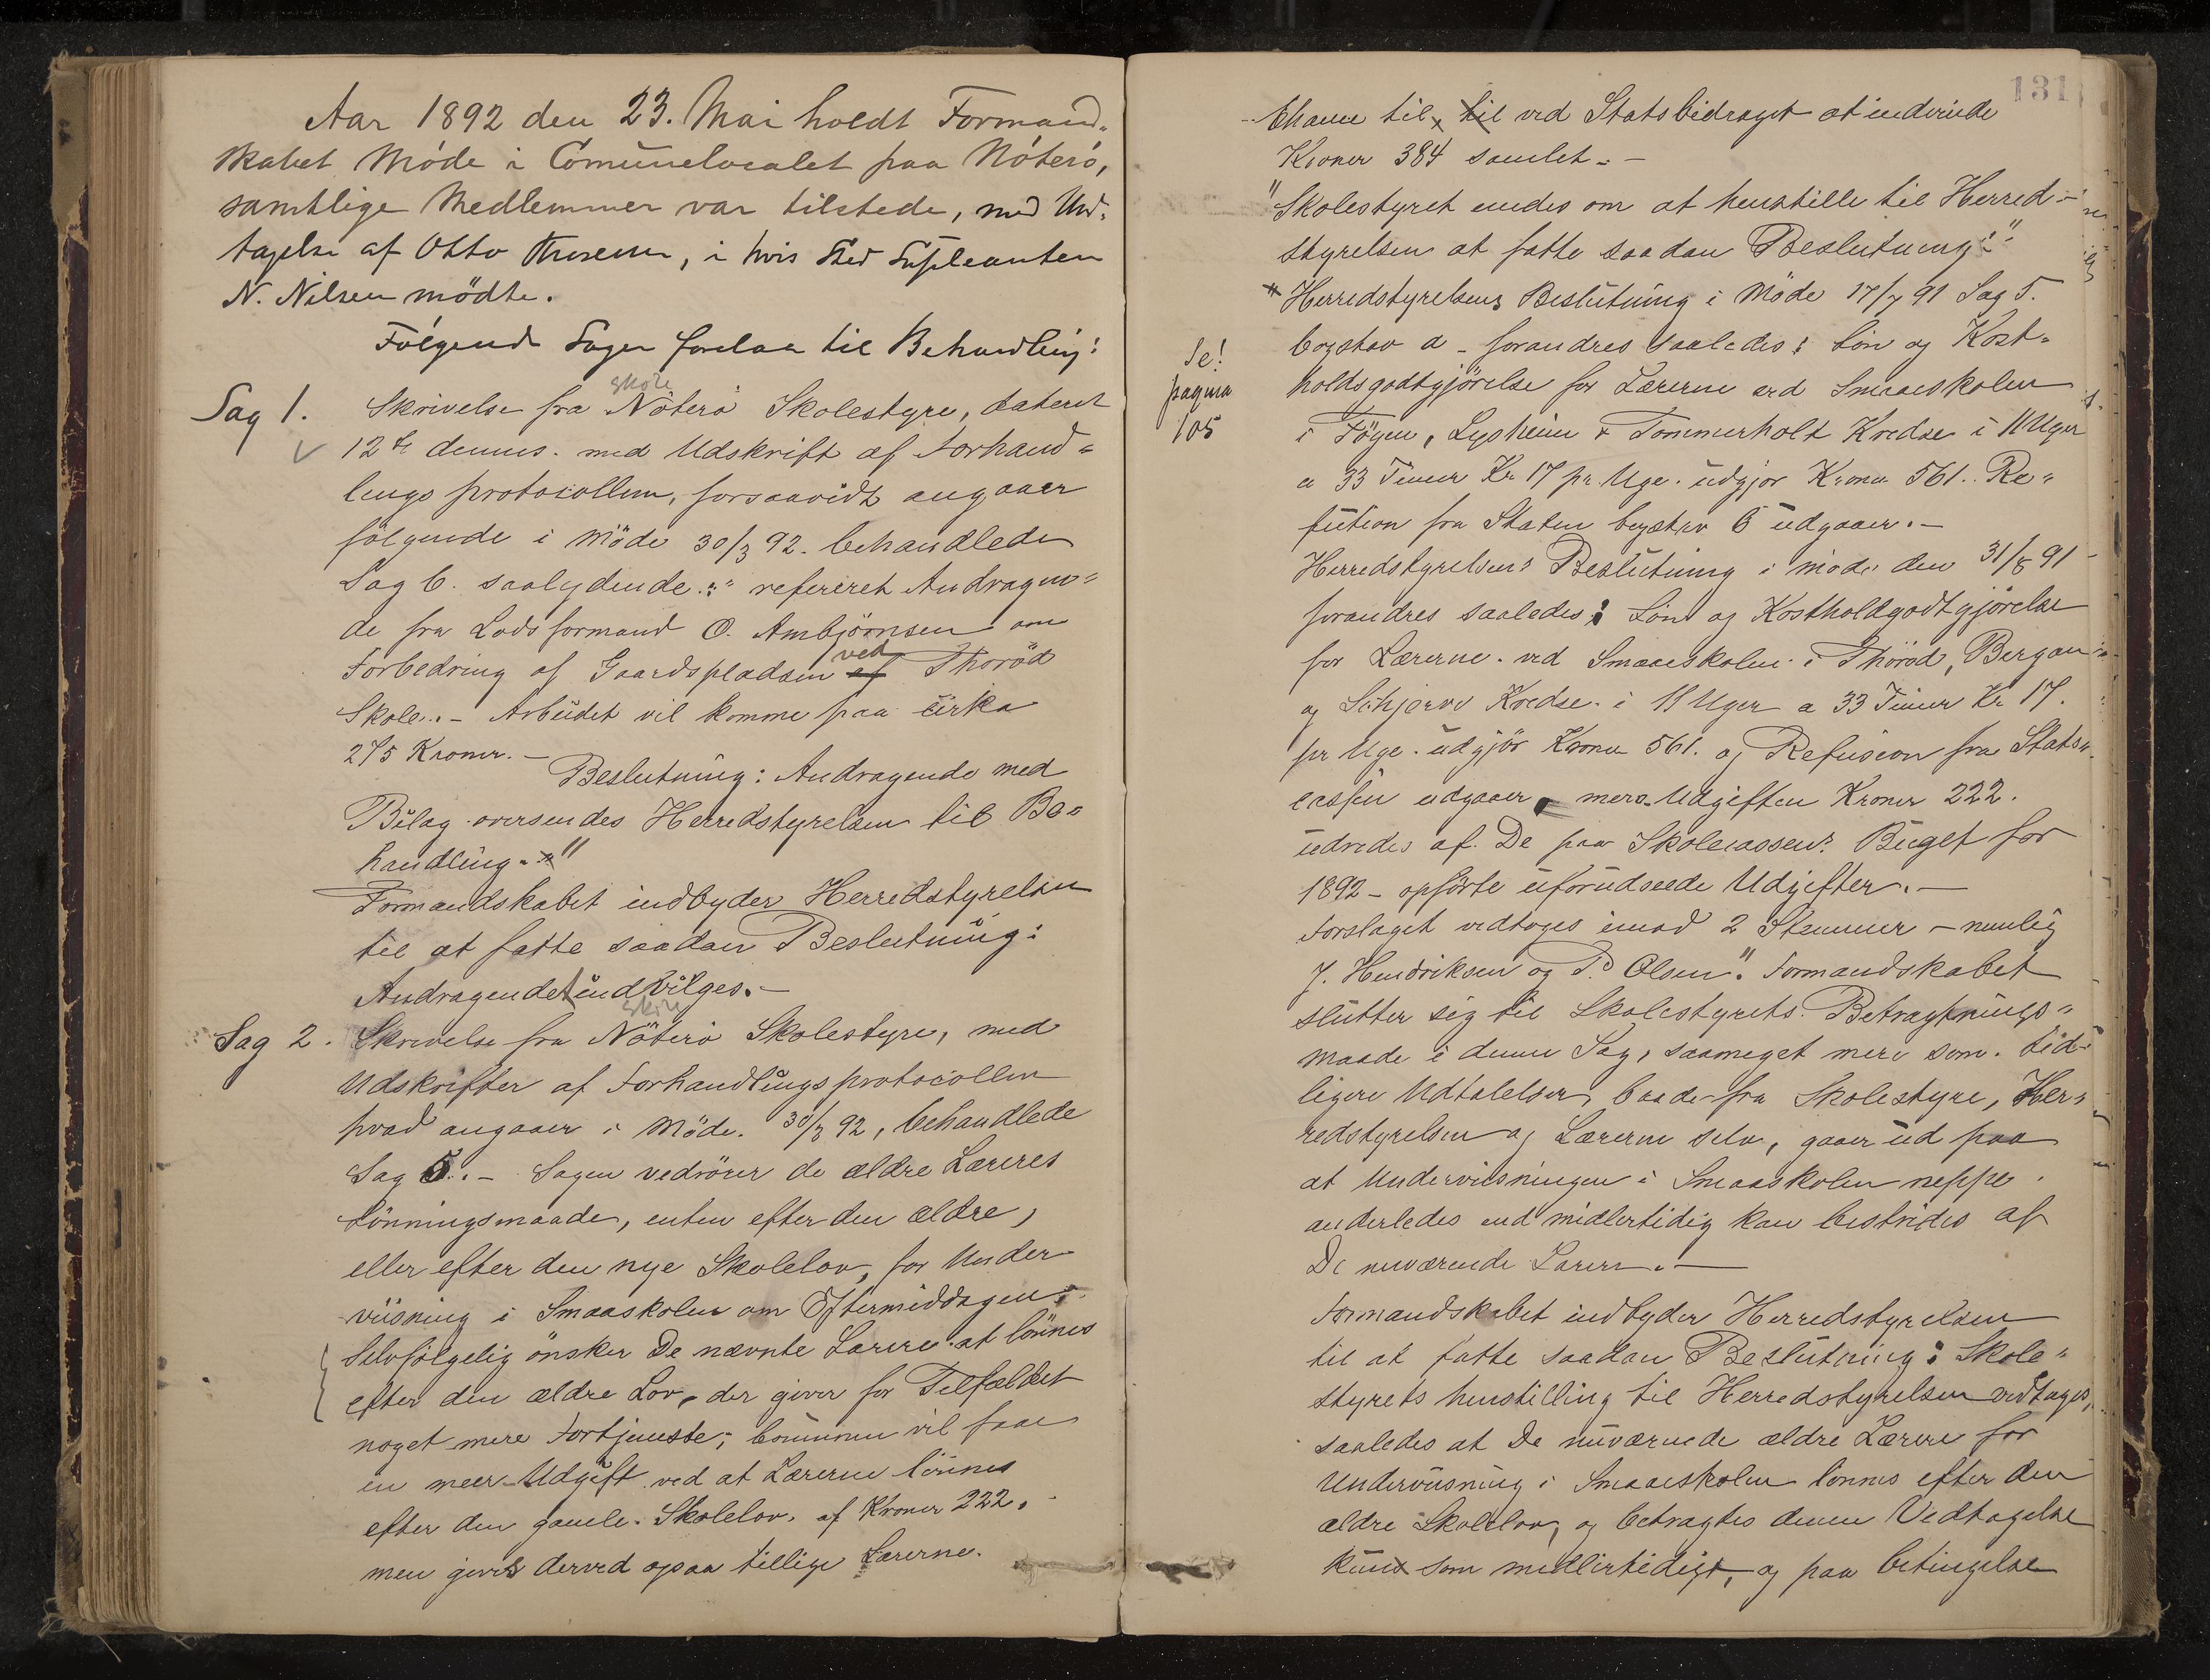 Aar 1892 den 23. Mai holdt Formand-
skabet Møde i Comunelocalet paa Nøterø,
samtlige Medlemmer var tilstede, med Und-
tagelse af Otto Thoresen, i hvis Sted Supleanten
N. Nilsen mødte.
Følgende Sager forelaa til Behandling:
skole
Sag 1. Skrivelse fra Nøterø Skolestyre, dateret
12te dennes. med Udskrift af Forhand-
lings protocollen, forsaavidt angaaer
følgende i Møde 30/3 92. behandlede
Sag 6. saalydende: " refereret Andragen-
de fra Lodsformand O. Ambjørnsen om
Forbedring af Gaardspladsen af ved Thorød
Skole. - Arbeidet vil komme paa cirka
275 Kroner. -
Beslutning: Andragende med
Bilag oversendes Herredstyrelsen til Be-
handling. "
Formandskabet indbyder Herredstyrelsen
til at fatte saadan Beslutning:
Andragendet indvilges. -
skole
Sag 2. Skrivelse fra Nøterø Skolestyre, med
Udskrifter af Forhandlings protocollen
hvad angaaer i Møde. 30/3 92, behandlede
Sag 5. - Sagen vedrører de ældre Læreres
Lønningsmaade, enten efter den ældre,
eller efter den nye Skolelov, for Under-
viisning i Smaaskolen om Eftermiddagen.
Selvfølgelig ønsker De nævnte Lærere at lønnes
efter den ældre Lov, der giver for Tilfældet
noget mere Fortjeneste; Comunen vil faae
en meer-Udgift ved at Lærerne lønnes
efter den gamle Skolelov, af Kroner 222.
men gives derved ogsaa tillige Lærerne.
131
Chance til, til ved Statsbidraget at indvinde
Kroner 384 samlet. -
"Skolestyret enedes om at henstille til Herred-
styrelsen at fatte saadan Beslutning:"
Herredstyrelsens Beslutning i Møde 17/7 91 Sag 5.
Se!
pagina
105
bogstav a - forandres saaledes: Løn og Kost-
holdsgodtgjørelse for Lærerne ved Smaaeskolen
i Føyen, Lysheim & Tommerholt Kredse i 11 Uger
a 33 Timer Kr 17 pr. Uge. udgjør Kroner 561. Re-
fution fra Staten bogstav b udgaaer. -
Herredstyrelsens Beslutning i møde den 31/8 91
forandres saaledes: Løn og Kostholdgodtgjørelse
for Lærerne. ved Smaaeskolen i Thorød, Bergan
og Schjerve Kredse. i 11 Uger a 33 Timer Kr 17.
pr Uge. udgjør Kroner 561. og Refusion fra Stats-
cassen udgaaer, mere-Udgiften Kroner 222.
udredes af. De paa Skolecassens Buget for
1892 - opførte uforudseede Udgifter. -
Forslaget vedtoges imod 2 Stemmer - nemlig
J. Hendriksen og P. Olsen". Formandskabet
slutter sig til Skolestyrets Betragtnings-
maade i denne Sag, saameget mere som. tid-
ligere Udtalelser, baade fra Skolestyre, Her-
redstyrelsen og Lærerne selv, gaaer ud paa
at Underviisningen i Smaaskolen neppe
anderledes end midlertidig kan bestrides af
De nuværende Lærere. -
Formandskabet indbyder Herredstyrelsen
til at fatte saadan Beslutning: Skole-
styrets henstilling til Herredstyrelsen vedtages,
saaledes at De nuværende ældre Lærere for
Underviisning i Smaaeskolen lønnes efter den
ældre Skolelov, og betragtes denne Vedtagelse
kun som midlertidigt, og paa betingelse